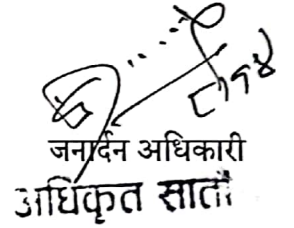 जनार्दन अधिकारी
अधिकृत सातौ